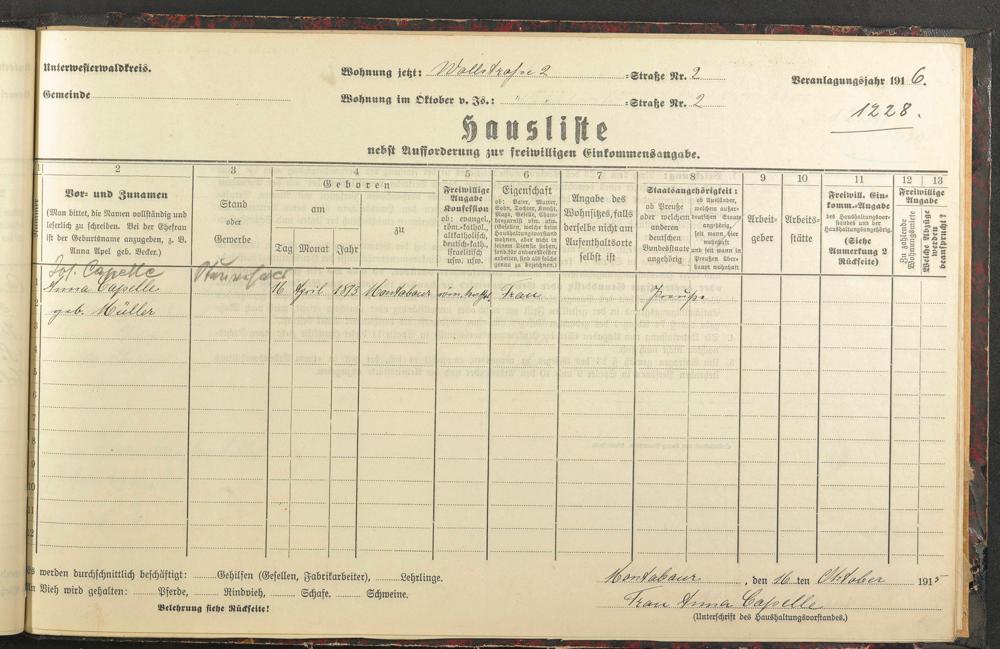 Unterwesterwaldkreis.
Wohnung jetzt: Wallstraße 2 =Straße Nr. 2
Veranlagungsjahr 1916.
Gemeinde
Wohnung im Oktober v. Js.: " " =Straße Nr. 2
1228.
Hausliste
nebst Aufforderung zur freiwilligen Einkommensangabe.
1 2 3 4 5 6 7 8 9 10 11 12 13
Nummer
Vor- und Zunamen
(Man bittet, die Namen vollständig und
leserlich zu schreiben. Bei der Ehefrau
ist der Geburtsname anzugeben, z. B.
Anna Apel geb. Becker.)
Stand
oder
Gewerbe
Geboren
am
zu
Tag Monat Jahr
Freiwillige
Angabe
Konfession
ob: evangel.,
röm.-kathol.,
altkatholisch,
deutsch-kath.,
israelitisch
usw. usw.
Eigenschaft
ob: Vater, Mutter,
Sohn, Tochter, Knecht,
Magd, Geselle, Cham-
bregarnist usw. usw.
(Gesellen, welche beim
Haushaltungsvorstand
wohnen, aber nicht in
seinem Dienste stehen,
sondern
Angabe des
Wohnsitzes, falls
derselbe nicht am
Aufenthaltsorte
selbst ist
Staatsangehörigkeit:
ob Preuße
oder welchem
anderen
deutschen
Bundesstaate
angehörig
ob Ausländer,
welchem außer-
deutschen Staate
angehörig,
seit wann hier
wohnhaft
und seit wann in
Preußen über-
haupt wohnhaft
Arbeit-
geber
Arbeits-
stätte
Freiwill. Ein-
komm.-Angabe
des Haushaltungsvor-
standes und der
Haushaltungsangehörig.
(Siehe
Anmerkung 2
Rückseite)
Freiwillige
Angabe
Zu zahlende
Wohnungsmiete
Welche Abzüge
werden
beansprucht?
Jos. Capelle
1 Anna Capelle 16 April 1873 Montabaur röm. kathol. Frau Preuße
2 geb. Müller
3
4
5
6
7
8
9
10
11
12
werden durchschnittlich beschäftigt: Gehilfen (Gesellen, Fabrikarbeiter), Lehrlinge.
An Vieh wird gehalten: Pferde, Rindvieh, Schafe. Schweine.
Belehrung siehe Rückseite!
Montabaur, den 16 ten Oktober 1915
Frau Anna Capelle
(Unterschrift des Haushaltungsvorstandes.)